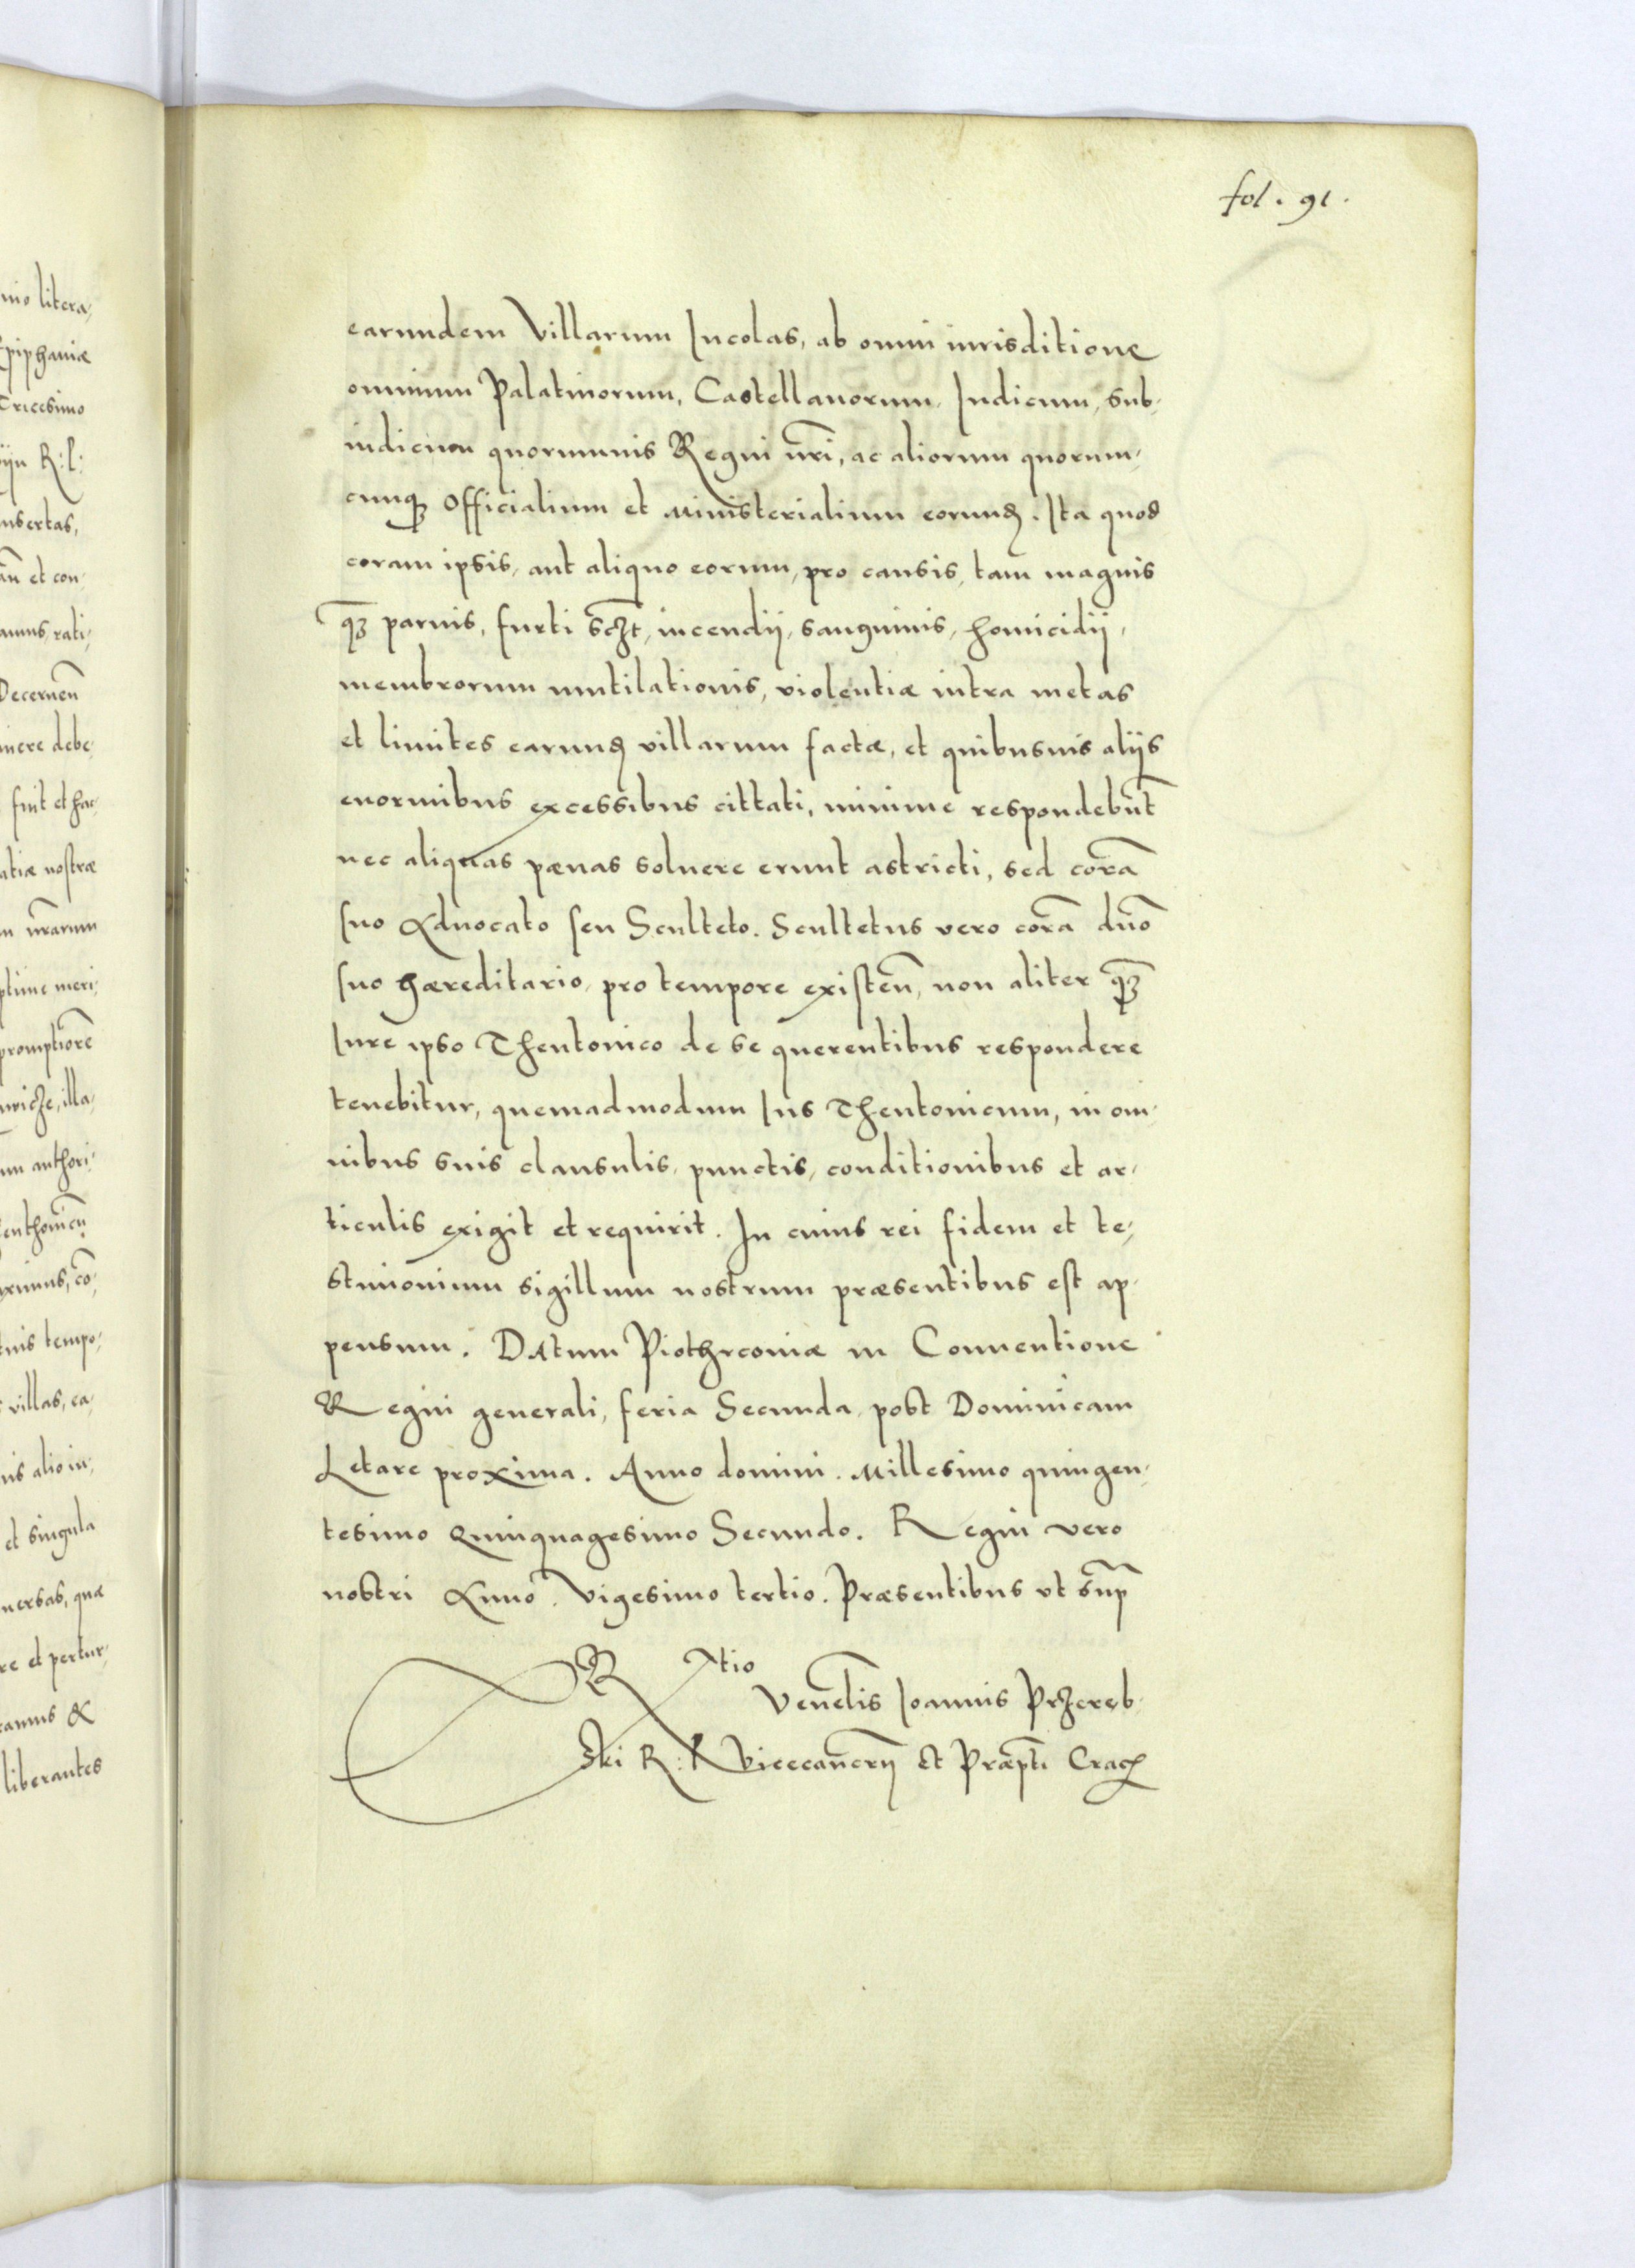 fol. 91.
earundem Villarum Incolas, ab omni iurisditione
omnium Palatinorum, Castellanorum, Iudicum, sub-
iudicum quorumuis Regni nr̃i, ac aliorum quorum-
cunqꝫ Officialium et Ministerialium eorund. Ita quod
coram ipsis, aut aliquo eorum, pro causis, tam magnis
qꝫ̃ paruis, furti sczt, incendij, sanguinis, homicidij,
membrorum mutilationis, violentiæ intra metas
et limites earund villarum factæ, et quibusuis alijs
enormibus excessibus cittati, minime respondebũt
nec aliquas pænas soluere erunt astricti, sed corã
suo Aduocato seu Sculteto. Scultetus vero corã dño
suo hæreditario, pro tempore existen̄, non aliter qꝫ̃
Iure ipso Theutonico de se querentibus respondere
tenebitur, quemadmodum Ius Theutonicum, in om-
nibus suis clausulis, punctis, conditionibus et ar-
ticulis exigit et requirit. In cuius rei fidem et te-
stimonium sigillum nostrum præsentibus est ap-
pensum. Datum Piothrconiæ in Conuentione
Regni generali, feria Secunda, post Dominicam
Letare proxima. Anno domini. Millesimo quingen-
tesimo Quinquagesimo Secundo. Regni vero
nostri Anno. Vigesimo tertio. Præsentibus vt sup̃
R tio
Venel̃is Ioannis Przereb-
ski R: P Vicecancrĩj et Præpti Crac
nio litera-
Epiphaniæ
Tricesimo
R: P:
nsertas,
et con-
amus, rati-
Decernen̄
nere debe-
fuit et hac
atiæ nostræ
nr̃arum
ptime meri-
promptiorẽ
illa-
um authori-
ximus, cõ-
tuis tempo-
villas, ca-
nis alio in-
et singula
uersas, quæ
re et pertur-
ramus &
liberantes